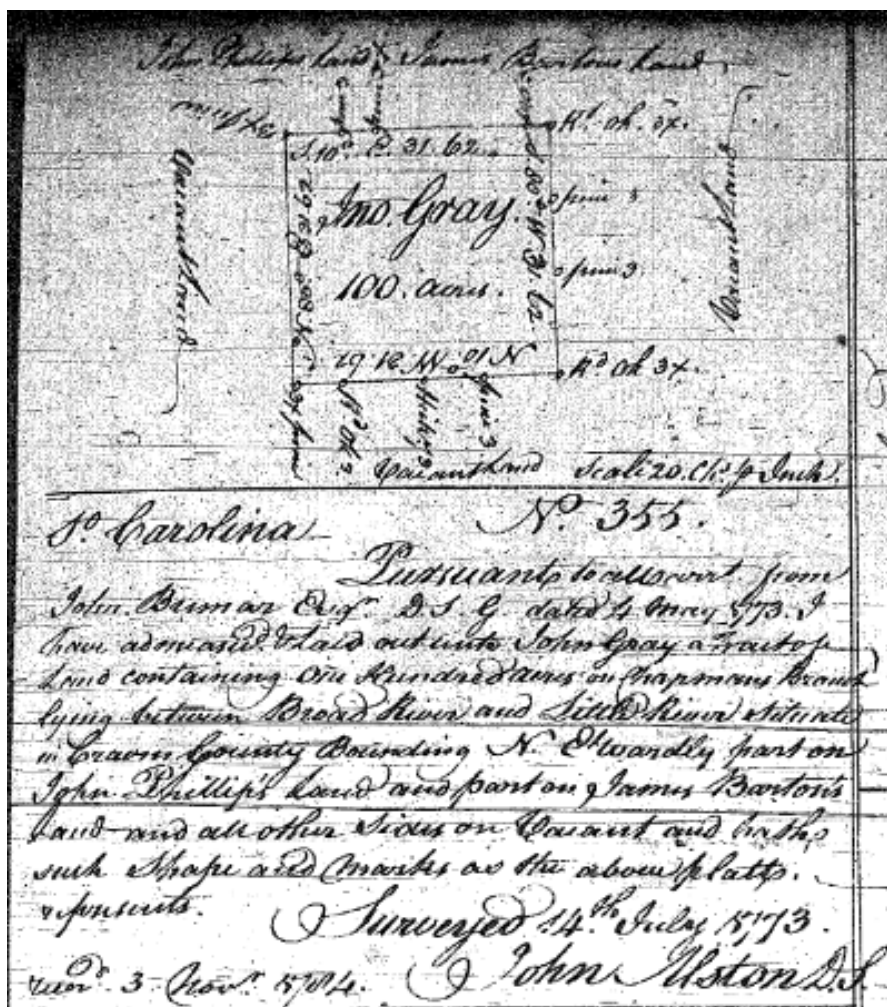 John Phillips Land James Bartons Land
3x pine
Rd. Oh. 3x.
S. 10° E. 31. 62.
Vacant Land
N. 80. E 31 62
Jno. Gray.
S. 80. W 31. 62
pine 3
Vacant Land
100. acres.
pine 3
N 10° W 31 62
Rd Oh 3x.
3x pine
Rd Oh 3
Hickory 3
pine 3
Vacant Land
Scale 20. Chs. p Inch.
So. Carolina
No. 355.
Pursuant to a warrt from
John Bremar Esqr. D. S. G dated 4 May 1773. I
have admeasured & laid out unto John Gray a Tract of
Land containing One Hundred acres on Chapmans Branch
lying between Broad River and Little River situate
in Craven County Bounding N. Eastwardly part on
John Phillip's Land and part on James Barton's
Land and all other Sides on Vacant and hath
such Shape and Marks as the above platt
represents.
Surveyed 14th. July 1773.
John Alston D. S.
3 Novr. 1784.